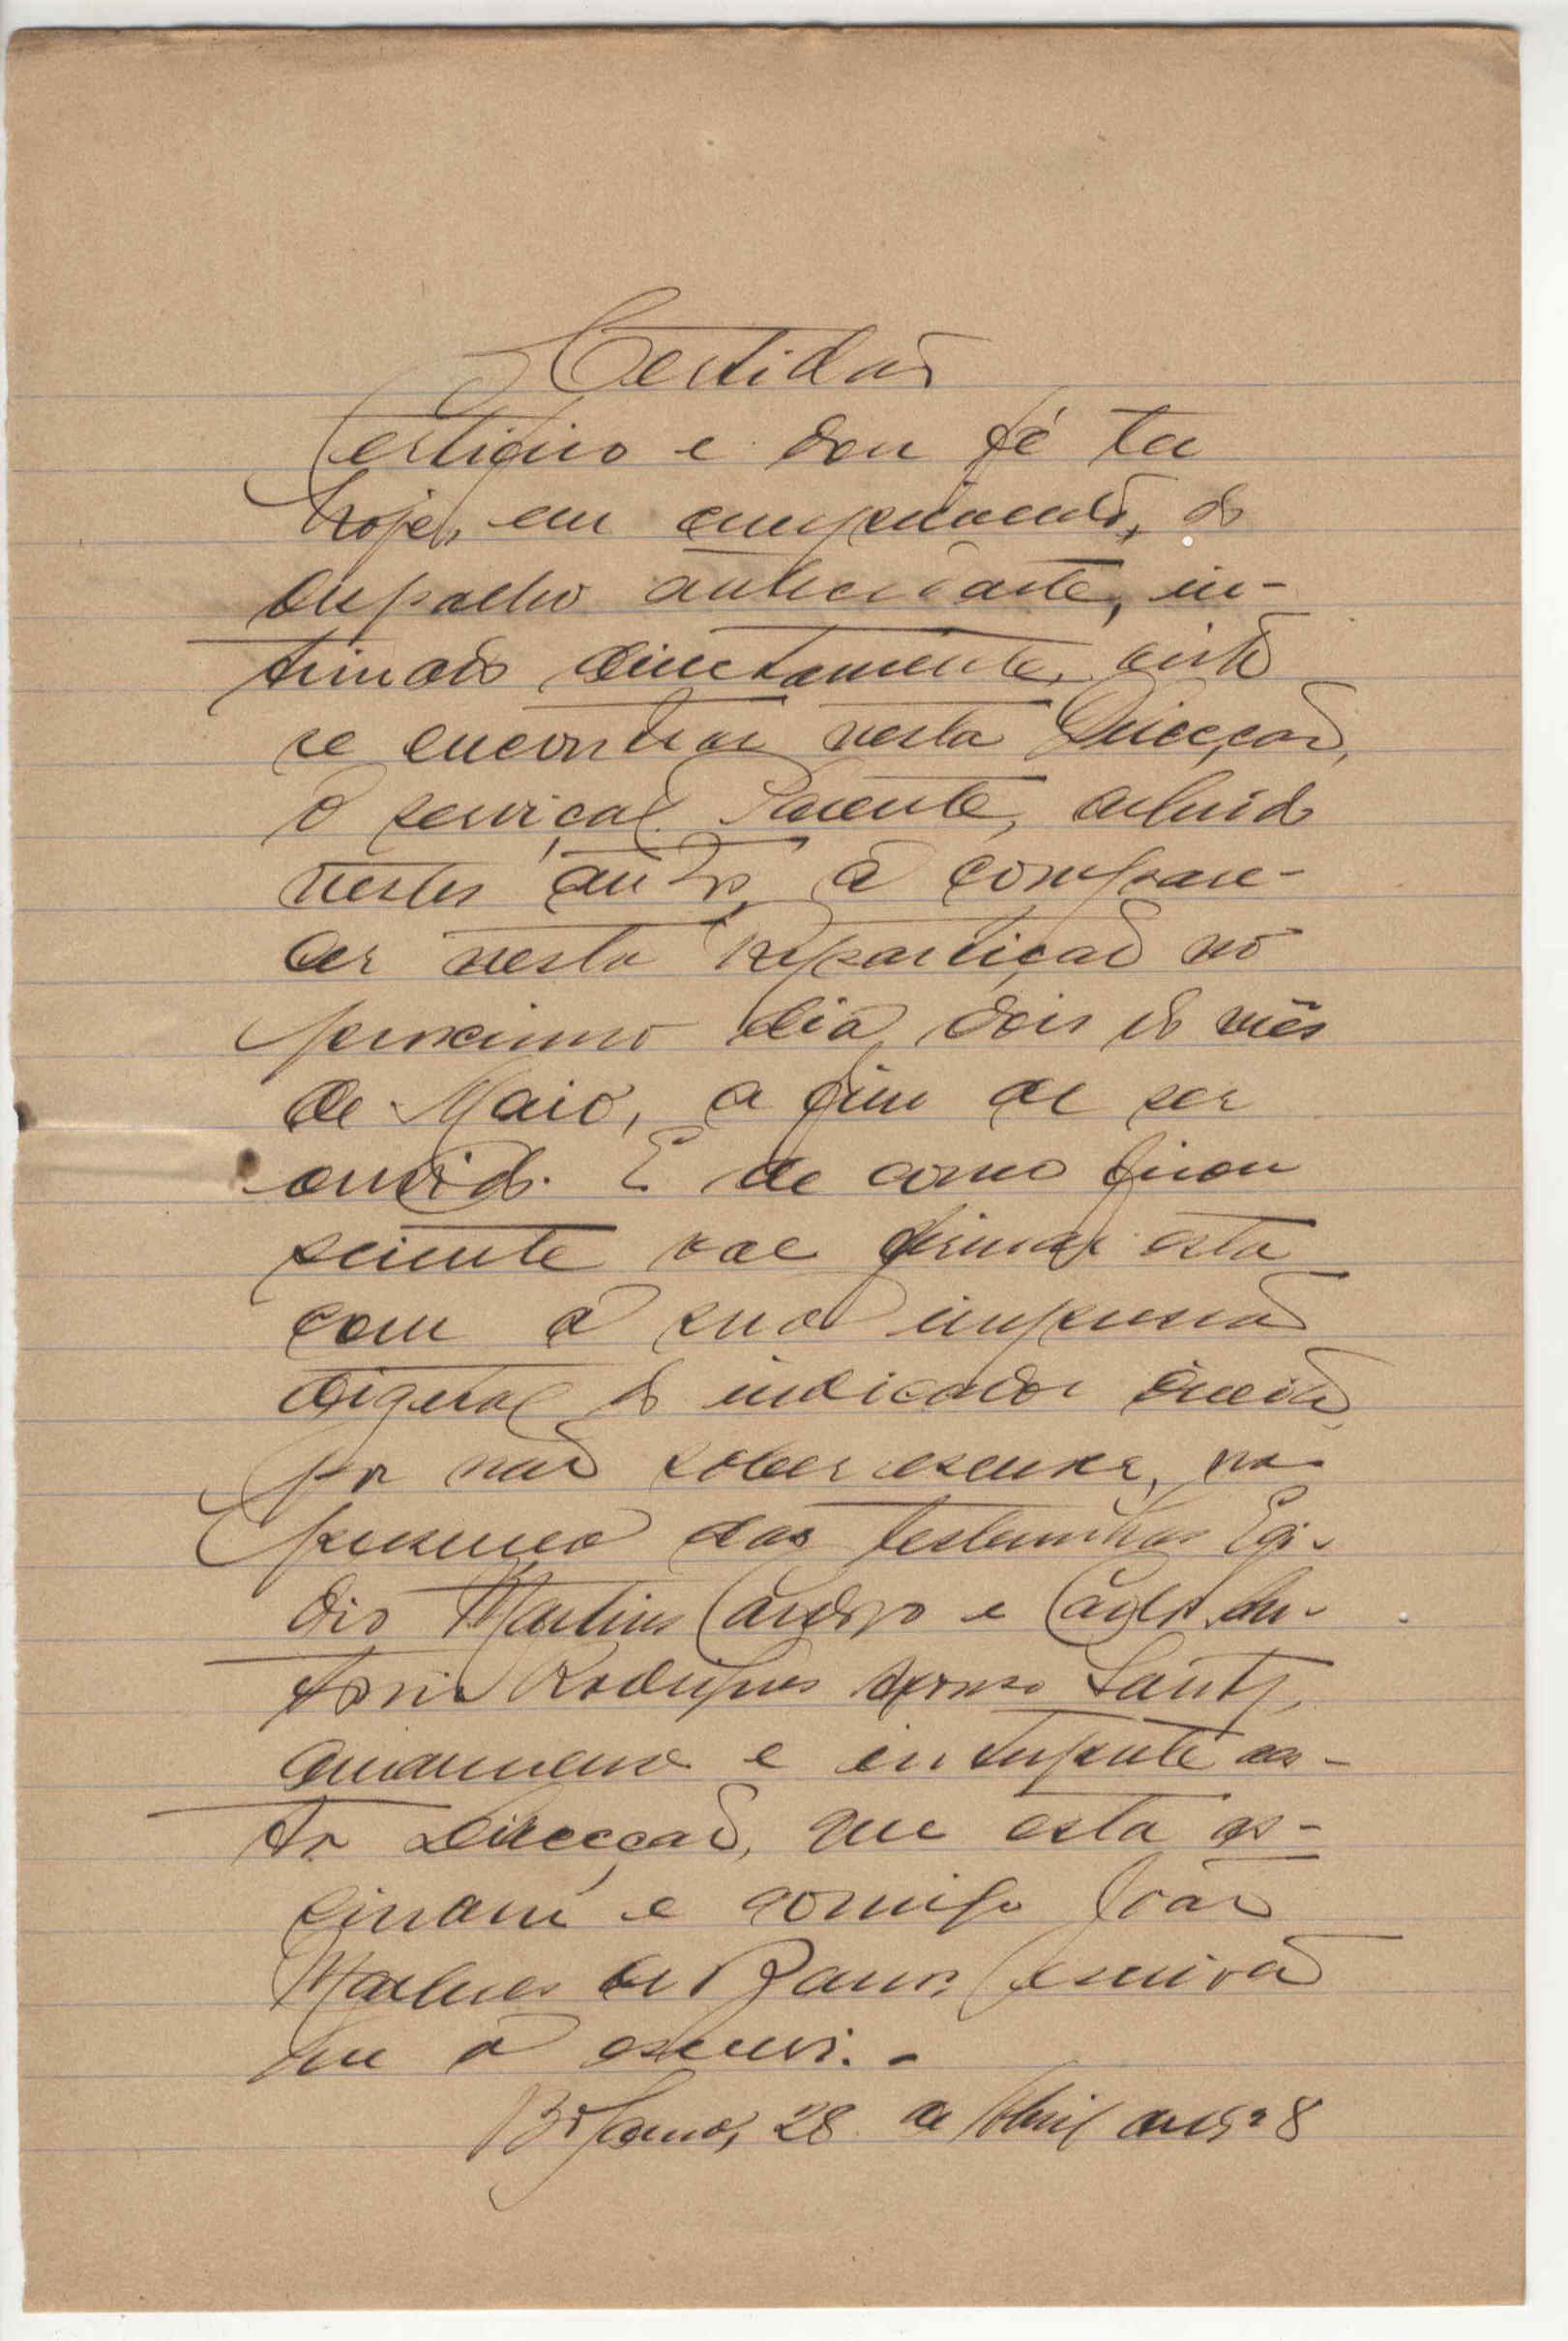 Certidão
Certifico e dou fé ter
hoje, em cumprimento, do
despacho antecedente, in-
timado directamente, visto
se encontrar nesta Direcção,
o serviçal Parente, aludido
nestes autos, a compare-
cer nesta Repartição no
proximo dia dois do mês
de Maio, a fim de ser
ouvido. E de como ficou
sciente vae firmar esta
com a sua impressão
digital do indicador direito,
por não saber escrever, na
presença das testemunhas Egi-
dio Martins Cardoso e Carlos An-
tonio Rodrigues Santos,
amanuense e interprete des-
ta Direcção, que esta as-
sinam e comigo João
Marques de Barros, escrivão
que a escrevi. -
Bolama, 28 de Abril de 1928